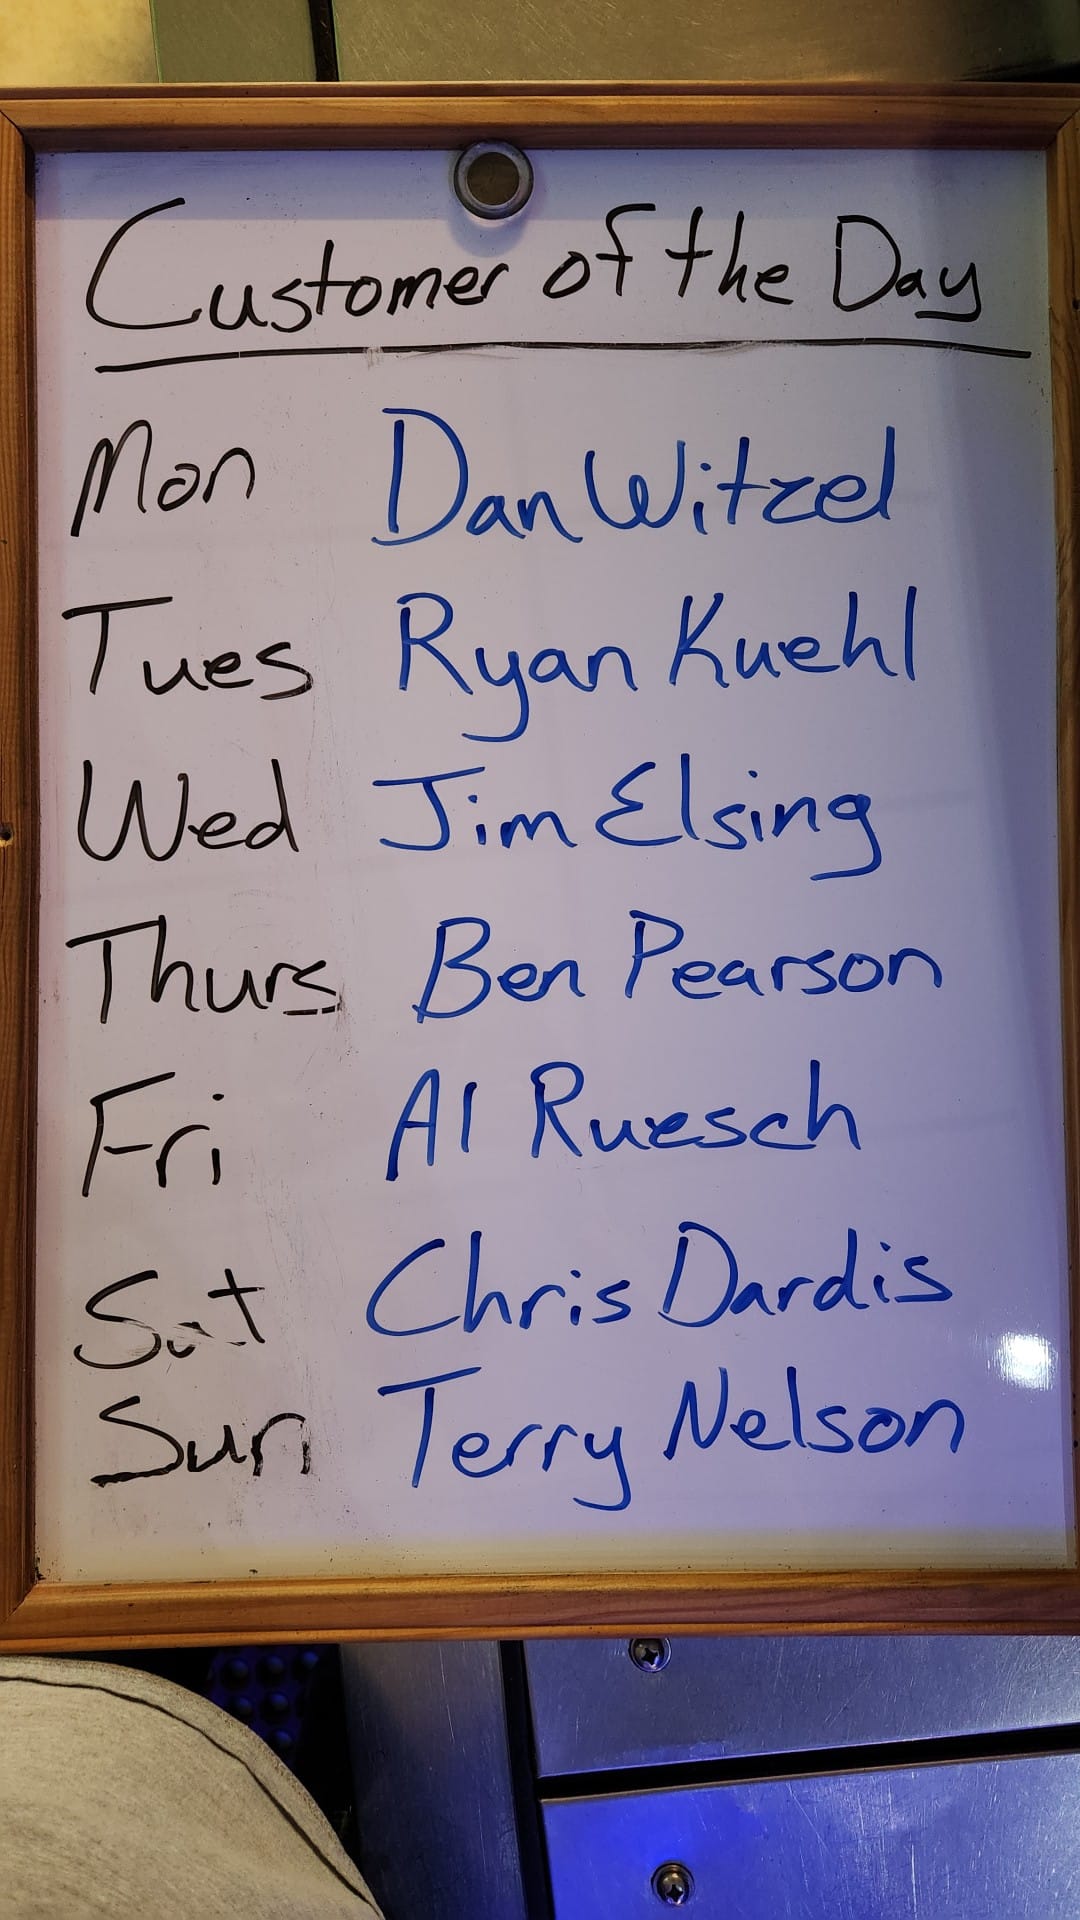 Customer of the Day
Mon Dan Witzel
Tues Ryan Kuehl
Wed Jim Elsing
Thurs Ben Pearson
Fri Al Ruesch
Sat Chris Dardis
Sun Terry Nelson